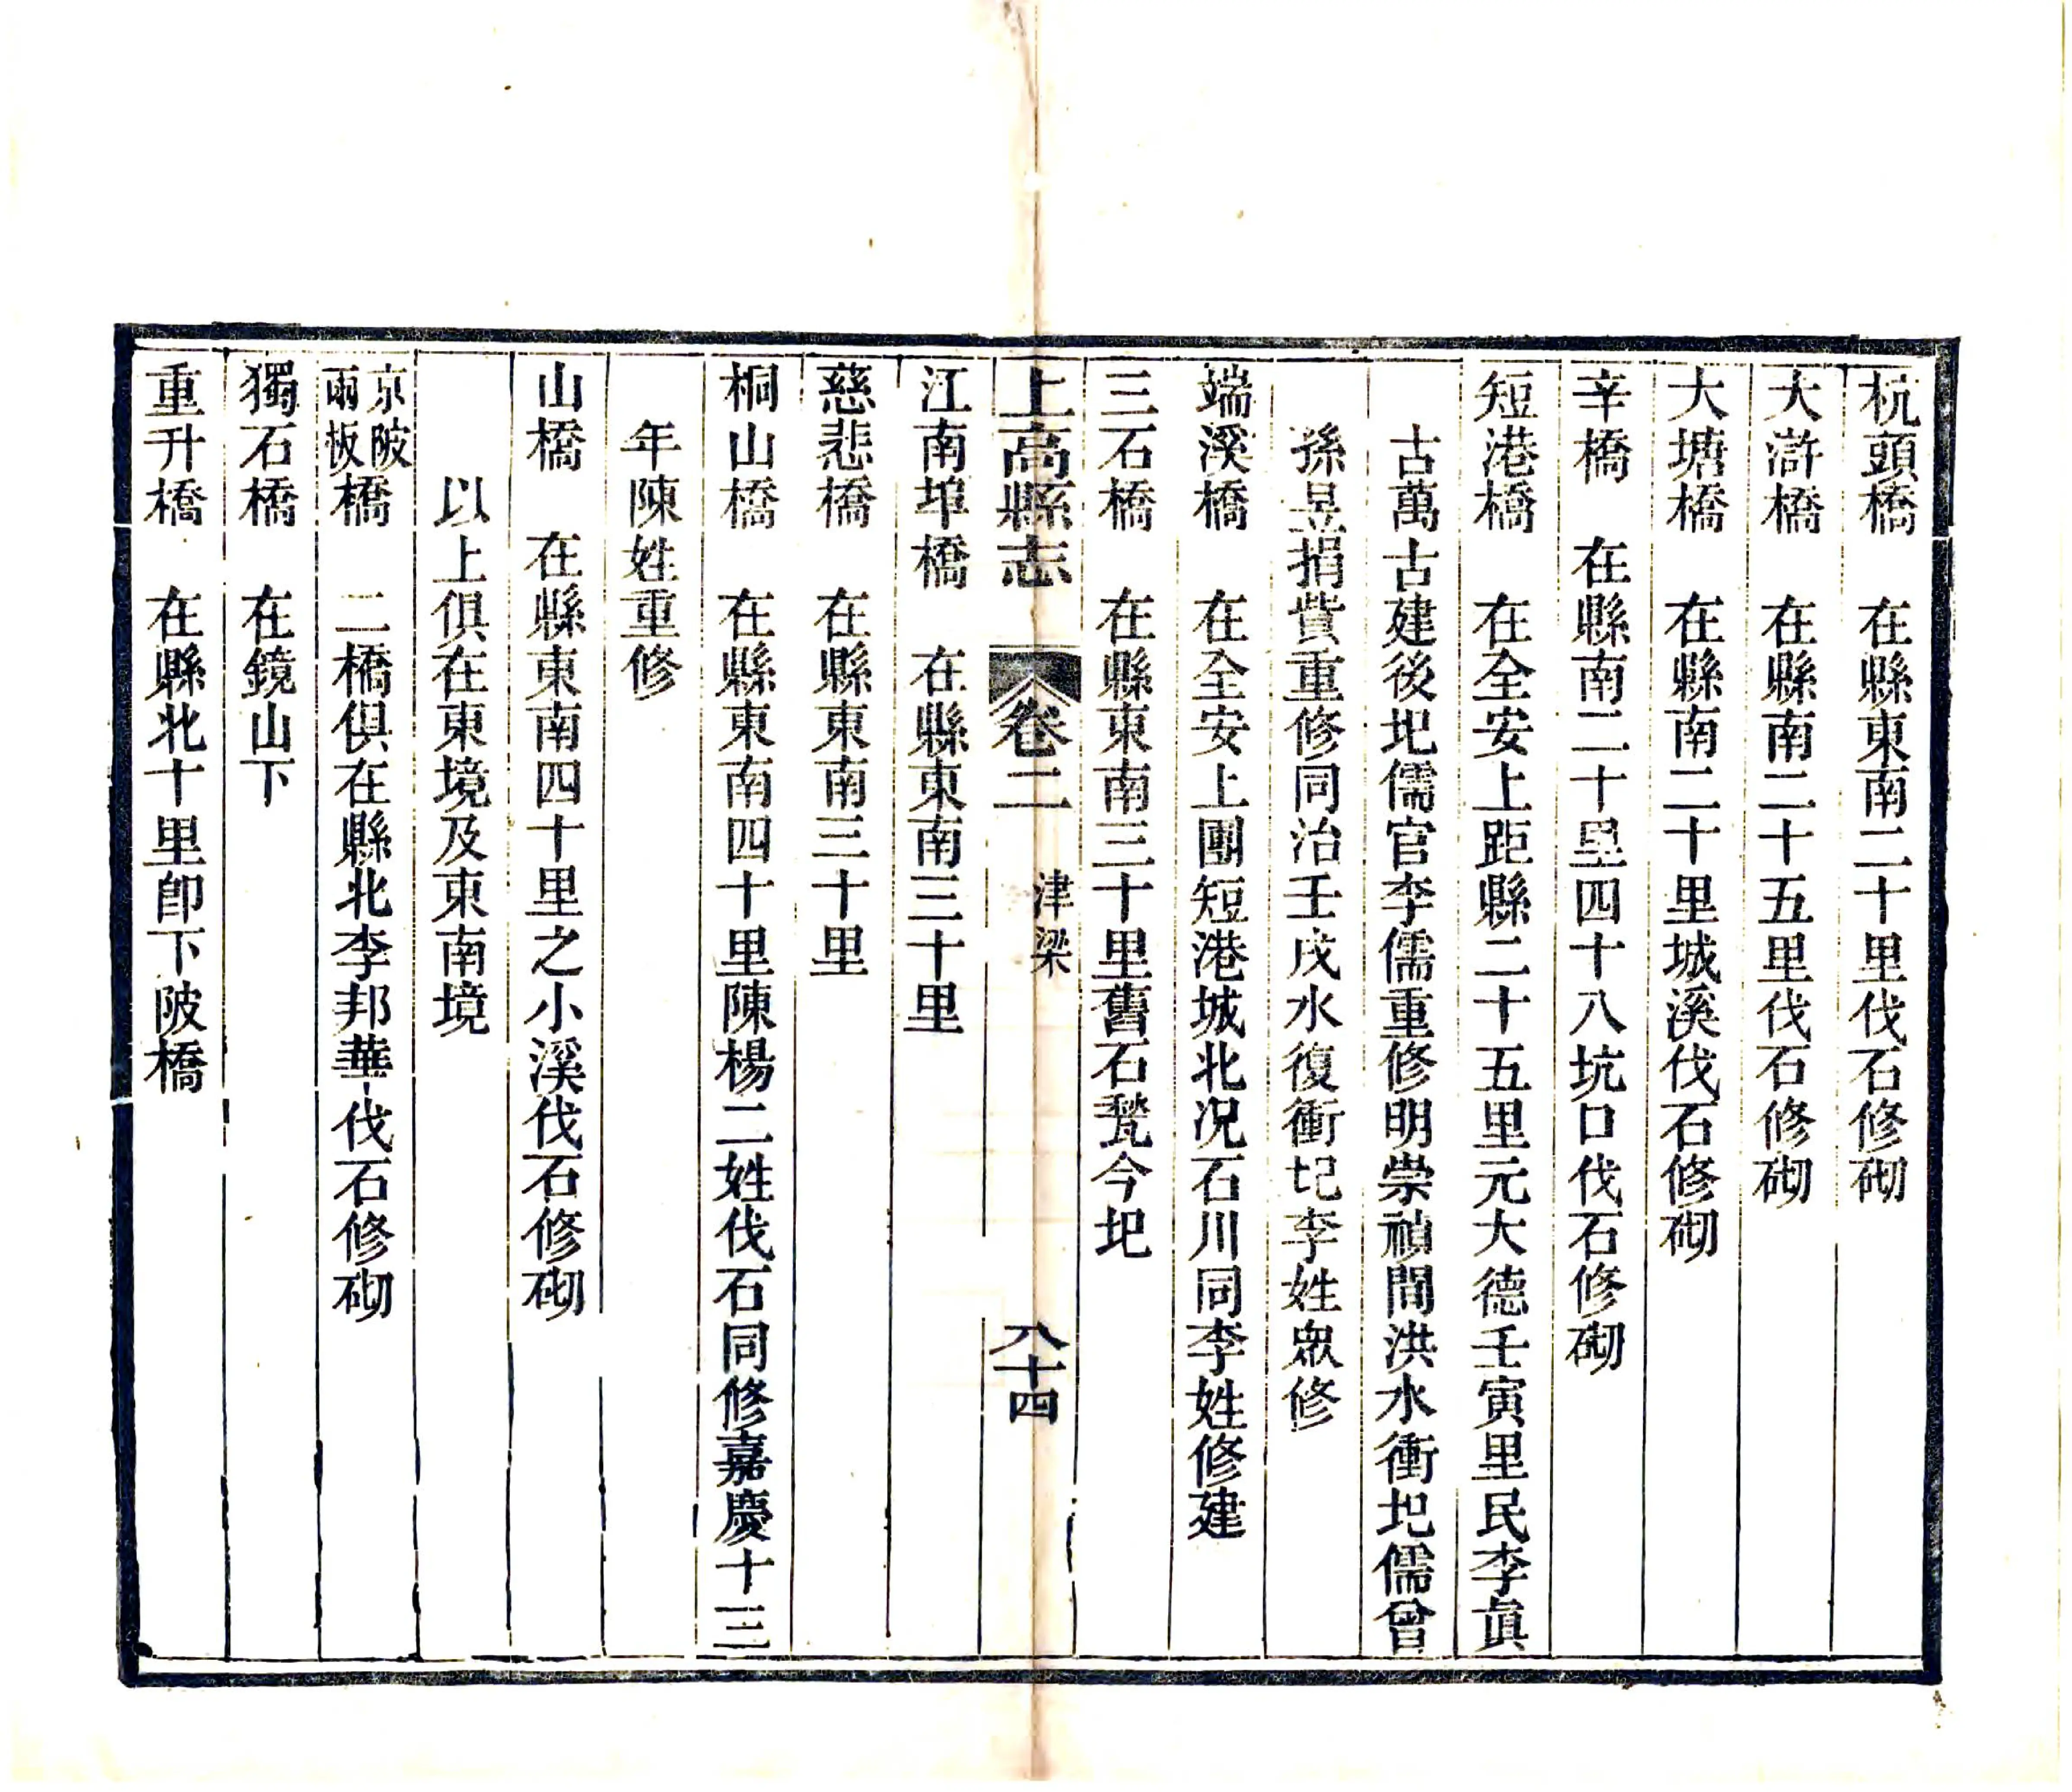 杭頭橋　在縣東南二十里伐石修砌
大滸橋　在縣南二十五里伐石修砌
大塘橋　在縣南二十里城溪伐石修砌
辛橋　在縣南二十里四十八坑口伐石修砌
短港橋　在全安上距縣二十五里元大德壬寅里民李眞
古萬古建後圯儒官李儒重修明崇禎間洪水衝圯儒曾
孫昱捐貲重修同治壬戌水復衝圯李姓眾修
端溪橋　在全安上團短港城北况石川同李姓修建
三石橋　在縣東南三十里舊石甃今圯
上高縣志　卷二　津梁　八十四
江南埠橋　在縣東南三十里
慈悲橋　在縣東南三十里
桐山橋　在縣東南四十里陳楊二姓伐石同修嘉慶十三
年陳姓重修
山橋　在縣東南四十里之小溪伐石修砌
以上俱在東境及東南境
京陂兩板橋　二橋俱在縣北李邦華伐石修砌
獨石橋　在鏡山下
重升橋　在縣北十里卽下陂橋